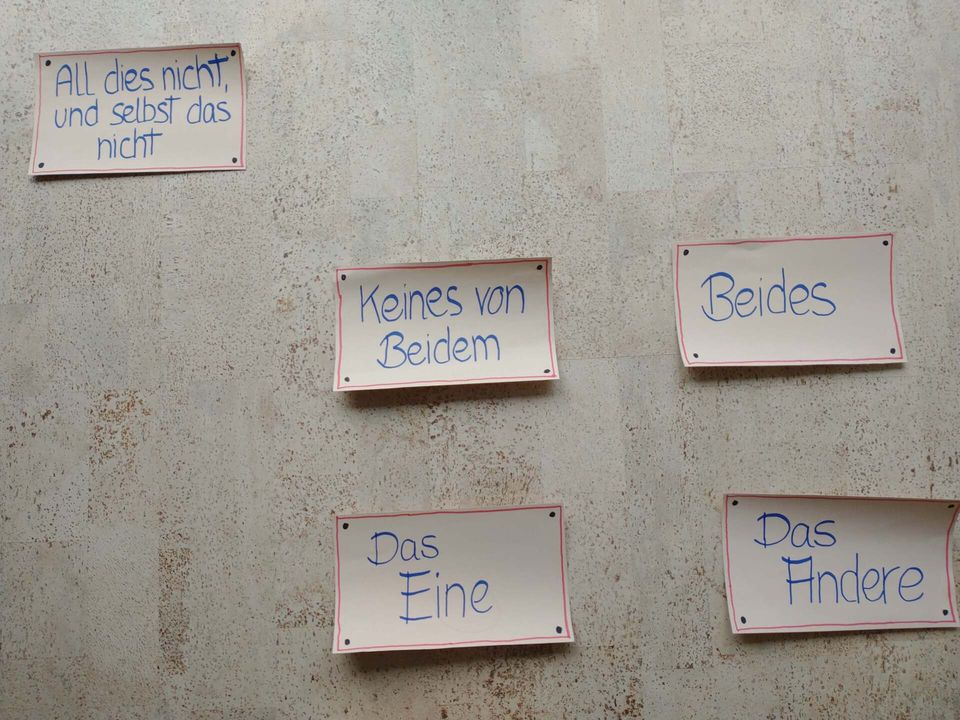 All dies nicht,
und selbst das
nicht
Keines von
Beidem
Beides
Das
Eine
Das
Andere